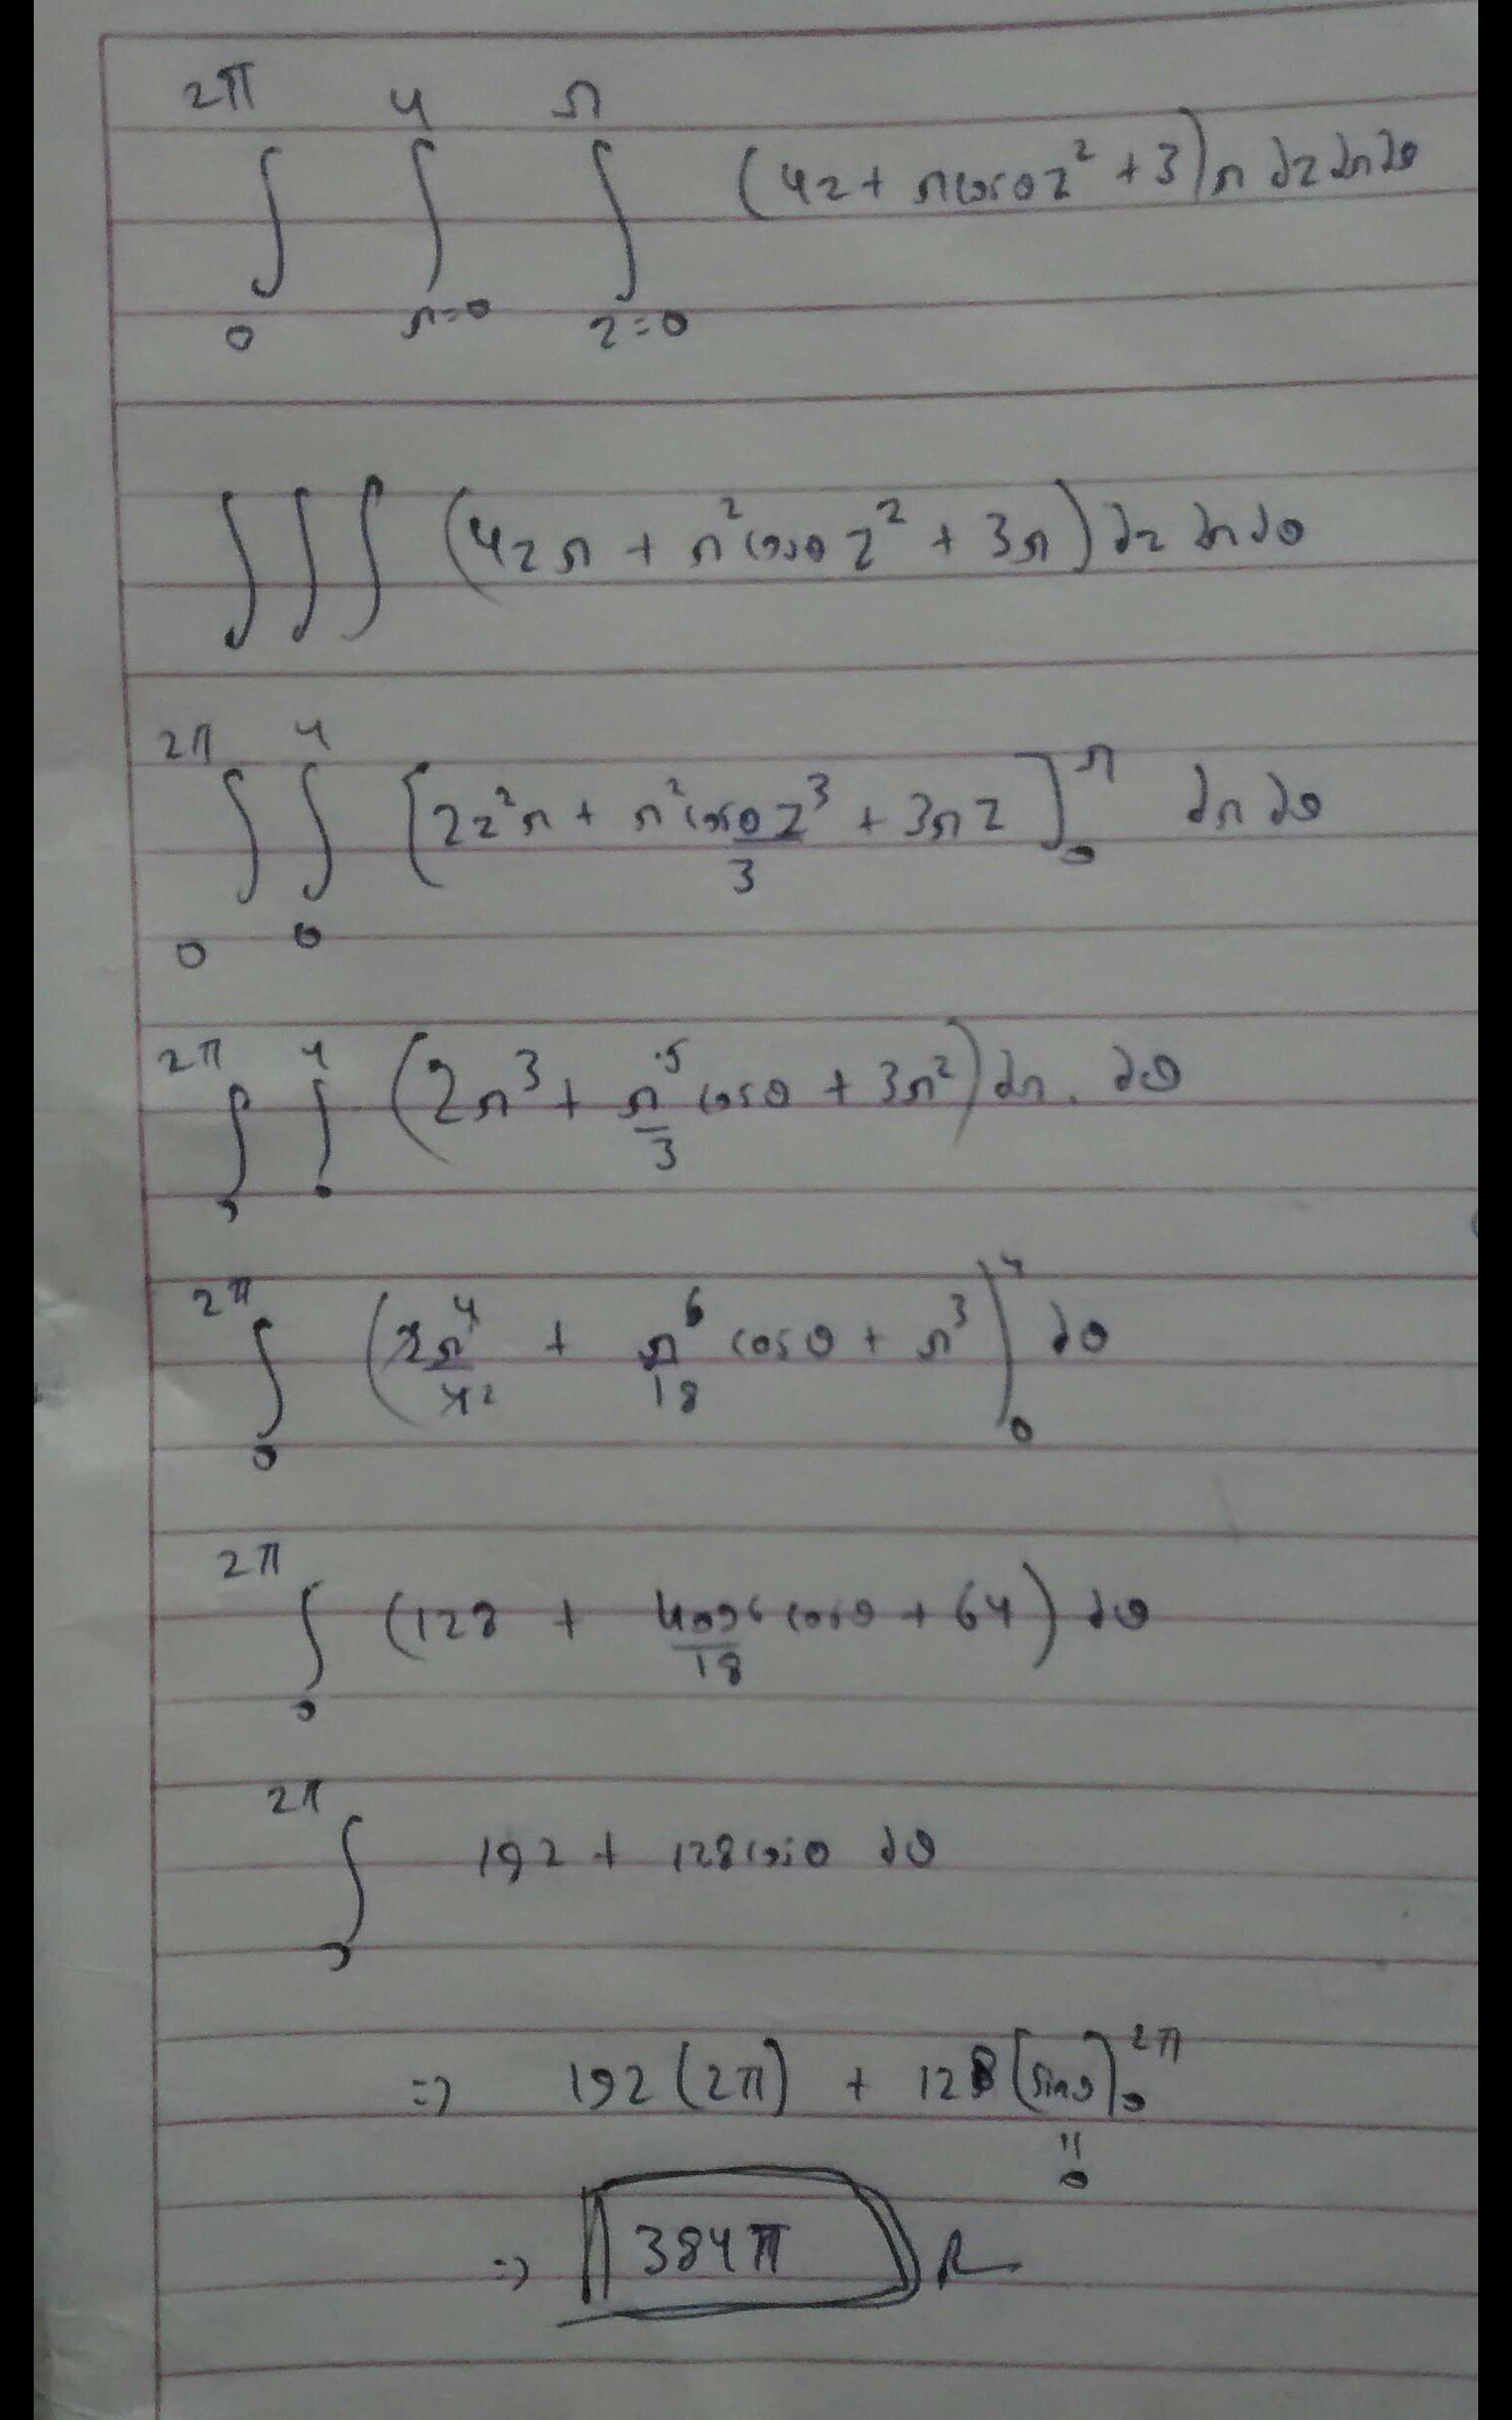 ∫₀^{2π} ∫_{r=0}^{4} ∫_{z=0}^{r} (4z + r cosθ z² + 3) r dz dr dθ
∫∫∫ (4zr + r² cosθ z² + 3r) dz dr dθ
∫₀^{2π} ∫₀^{4} [2z²r + r² cosθ z³/3 + 3rz]₀^{r} dr dθ
∫₀^{2π} ∫₀^{4} (2r³ + r⁵/3 cosθ + 3r²) dr. dθ
∫₀^{2π} (2r⁴/4 2 + r⁶/18 cosθ + r³)₀⁴ dθ
∫₀^{2π} (128 + 4096/18 cosθ + 64) dθ
∫₀^{2π} 192 + 128 cosθ dθ
=> 192(2π) + 128[sinθ]₀^{2π}
"
0
=> 384π